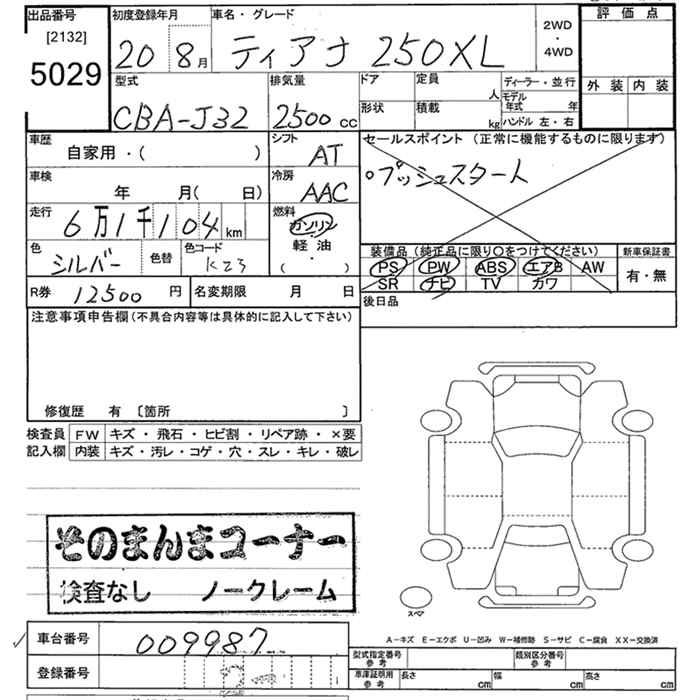 出品番号
[2132]
5029
初度登録年月
20 8月
車名・グレード
ティアナ 250XL
2WD
・
4WD
評価点
外装 内装
型式
CBA-J32
排気量
2500 cc
ドア
形状
定員
人
積載
kg
ディーラー・並行
モデル
年式 年
ハンドル 左・右
車歴
自家用・( )
シフト
AT
セールスポイント (正常に機能するものに限ります)
・プッシュスタート
車検
年 月( 日)
冷房
AAC
走行
6万1千104km
燃料
ガソリン
軽油
( ・ )
色
シルバー
色替
色コード
K23
装備品 (純正品に限り○をつけてください)
PS PW ABS エアB AW
SR ナビ TV カワ
新車保証書
有・無
R券 12500 円
名変期限 月 日
後日品
注意事項申告欄 (不具合内容等は具体的に記入して下さい)
修復歴 有 〔箇所 〕
検査員 FW キズ・飛石・ヒビ割・リペア跡・×要
記入欄 内装 キズ・汚レ・コゲ・穴・スレ・キレ・破レ
そのまんまコーナー
検査なし ノークレーム
スペア
A-キズ E-エクボ U-凹み W-補修跡 S-サビ C-腐食 XX-交換済
車台番号 009987
登録番号
型式指定番号
参考
類別区分番号
参考
車庫証明用
参考
長さ cm
幅 cm
高さ cm